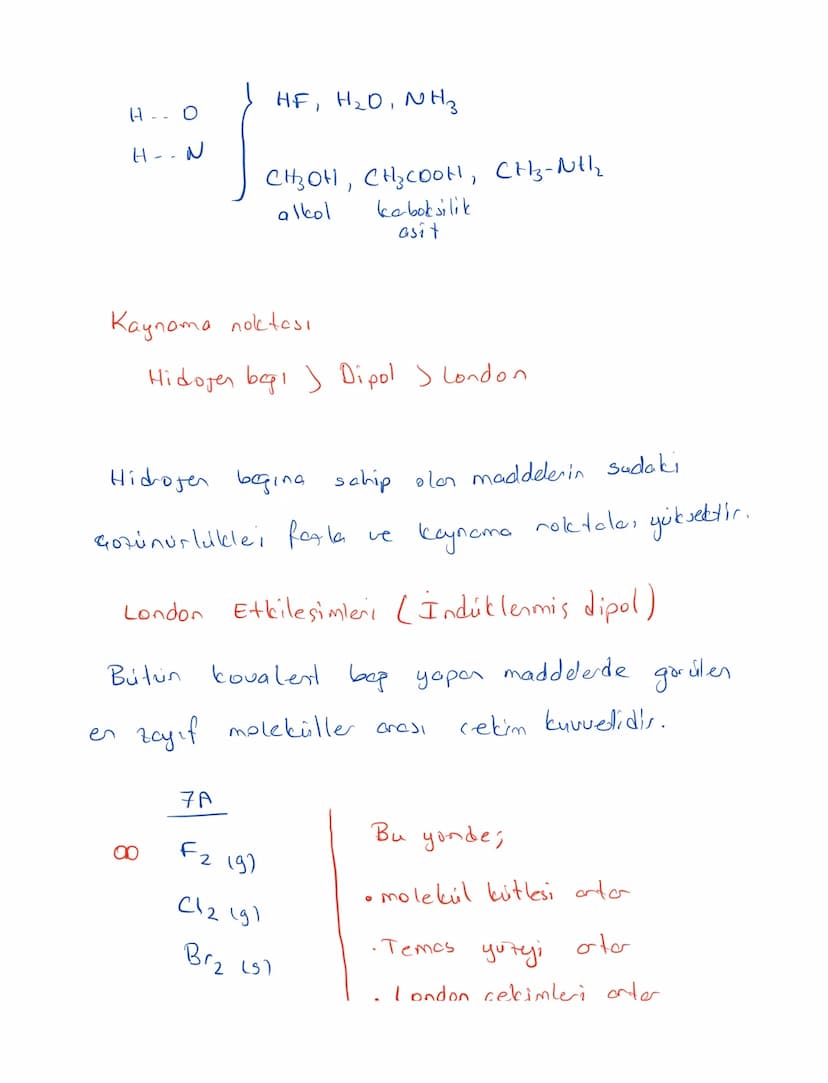 H -- O
H -- N
HF, H₂O, NH₃
CH₃OH, CH₃COOH, CH₃-NH₂
alkol kaboksilik
asit
Kaynama noktası
Hidrojen bağı > Dipol > London
Hidrojen bağına sahip olan maddelerin sudaki
çözünürlükleri fazla ve kaynama noktaları yüksektir.
London Etkileşimleri (İndüklenmiş dipol)
Bütün kovalent bağ yapan maddelerde görülen
en zayıf moleküller arası çekim kuvvetidir.
7A
F₂ (g)
Cl₂ (g)
Br₂ (s)
Bu yönde;
• molekül kütlesi artar
• Temas yüzeyi artar
• London çekimleri artar